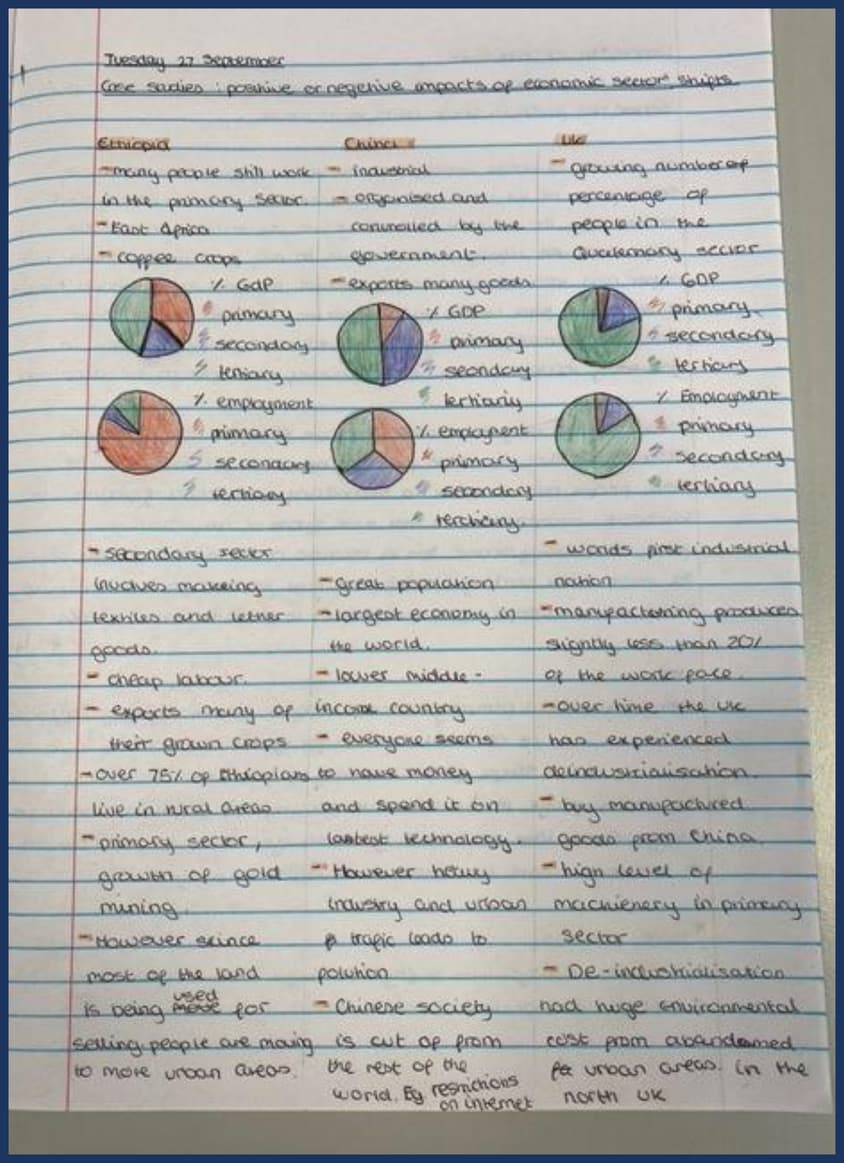 Tuesday 27 September
Case studies : positive or negetive impacts of economic sector shifts
Ethiopia
- many people still work
in the primary sector.
- East Africa
- coffee crops
% GdP
primary
secondary
tertiary
% employment
primary
secondary
tertiary
- secondary sector
involves makeing
textiles and lether
goods.
- cheap labour.
- exports many of
their grown crops
- over 75% of Ethiopians
live in rural areas
- primary sector,
growth of gold
mining.
- However scince
most of the land
is being used for
selling, people are moving
to more urban areas.
China
- industrial
- organised and
conrolled by the
government.
- exports many goods
% GDP
primary
seondary
tertiariy
% employent
primary
secondary
terchiary.
- great population
- largest economy in
the world.
- lower middle -
income country
- everyone seems
to have money
and spend it on
lastest technology.
- However heavy
industry and urban
trafic leads to
polution
- Chinese society
is cut of from
the rest of the
world. Eg restrictions
on internet
UK
- growing number of
percentage of
people in the
Quaternary sector
% GDP
primary
secondary
tertiary
% Employment
primary
secondary
tertiary
- worlds first industrial
nation
- manufactoring produces
slightly less than 20%
of the work force.
- over time the UK
has experienced
deindustrialisation.
- buy manufactured
goods from China
- high level of
machienery in primary
sector
- De-industrialisation
had huge environmental
cost from abandoned
urban areas. in the
north UK